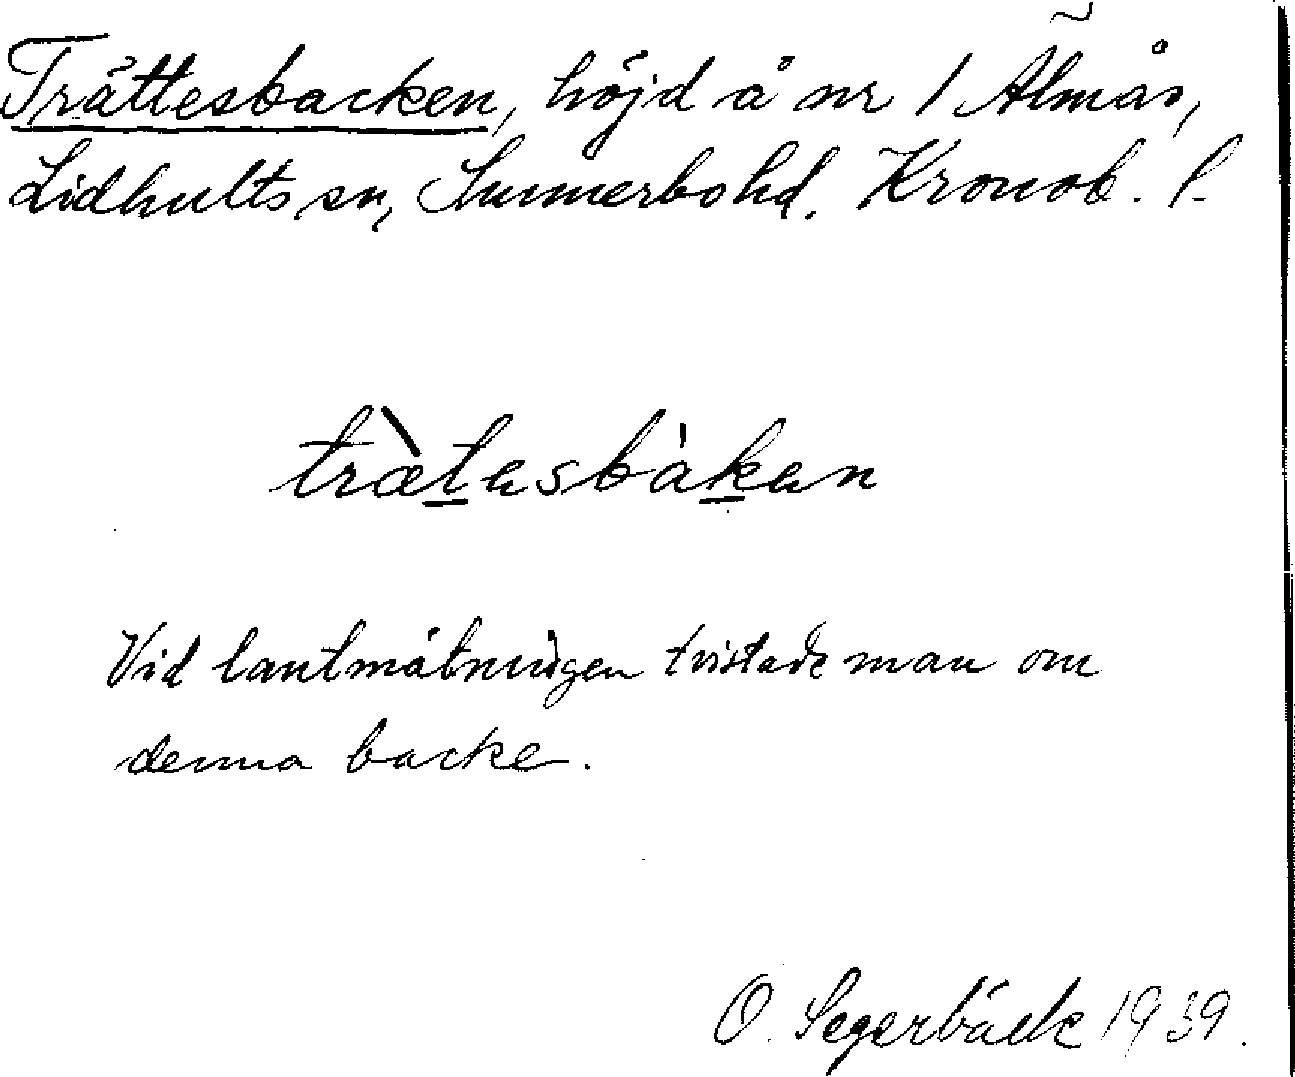 Trättesbacken, höjd å nr 1 Älmås,
Lidhults sn, Sunnerbo hd. Kronob. l.
trætesbàken
Vid lantmätningen tvistade man om
denna backe.
O. Segerbäck 1939.